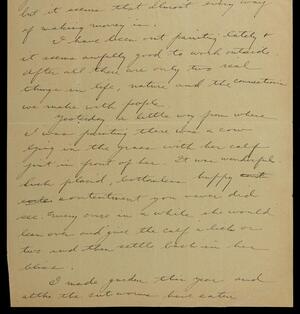 but it seems that almost every way
of making money is.
I have been out painting lately &
it seems awfully good to work outside
After all there are only two real
things in life, nature and the connections
we make with people.
Yesterday a little way from where
I was painting there was a cow
lying in the grass with her calf
just in front of her. It was wonderful
Such placid, bottomless happy
contentment you never did
see. Every once in a while she would
lean over and give the calf a lick or
two and then settle back in her
bliss.
I made garden this year and
altho the cut worms have eaten